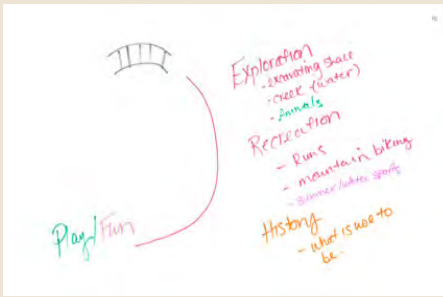 Exploration
- excavating shale
- creek (water)
- Animals
Recreation
- Runs
- mountain biking
- summer/water sports
History
- what is use to
be.
Play/Fun